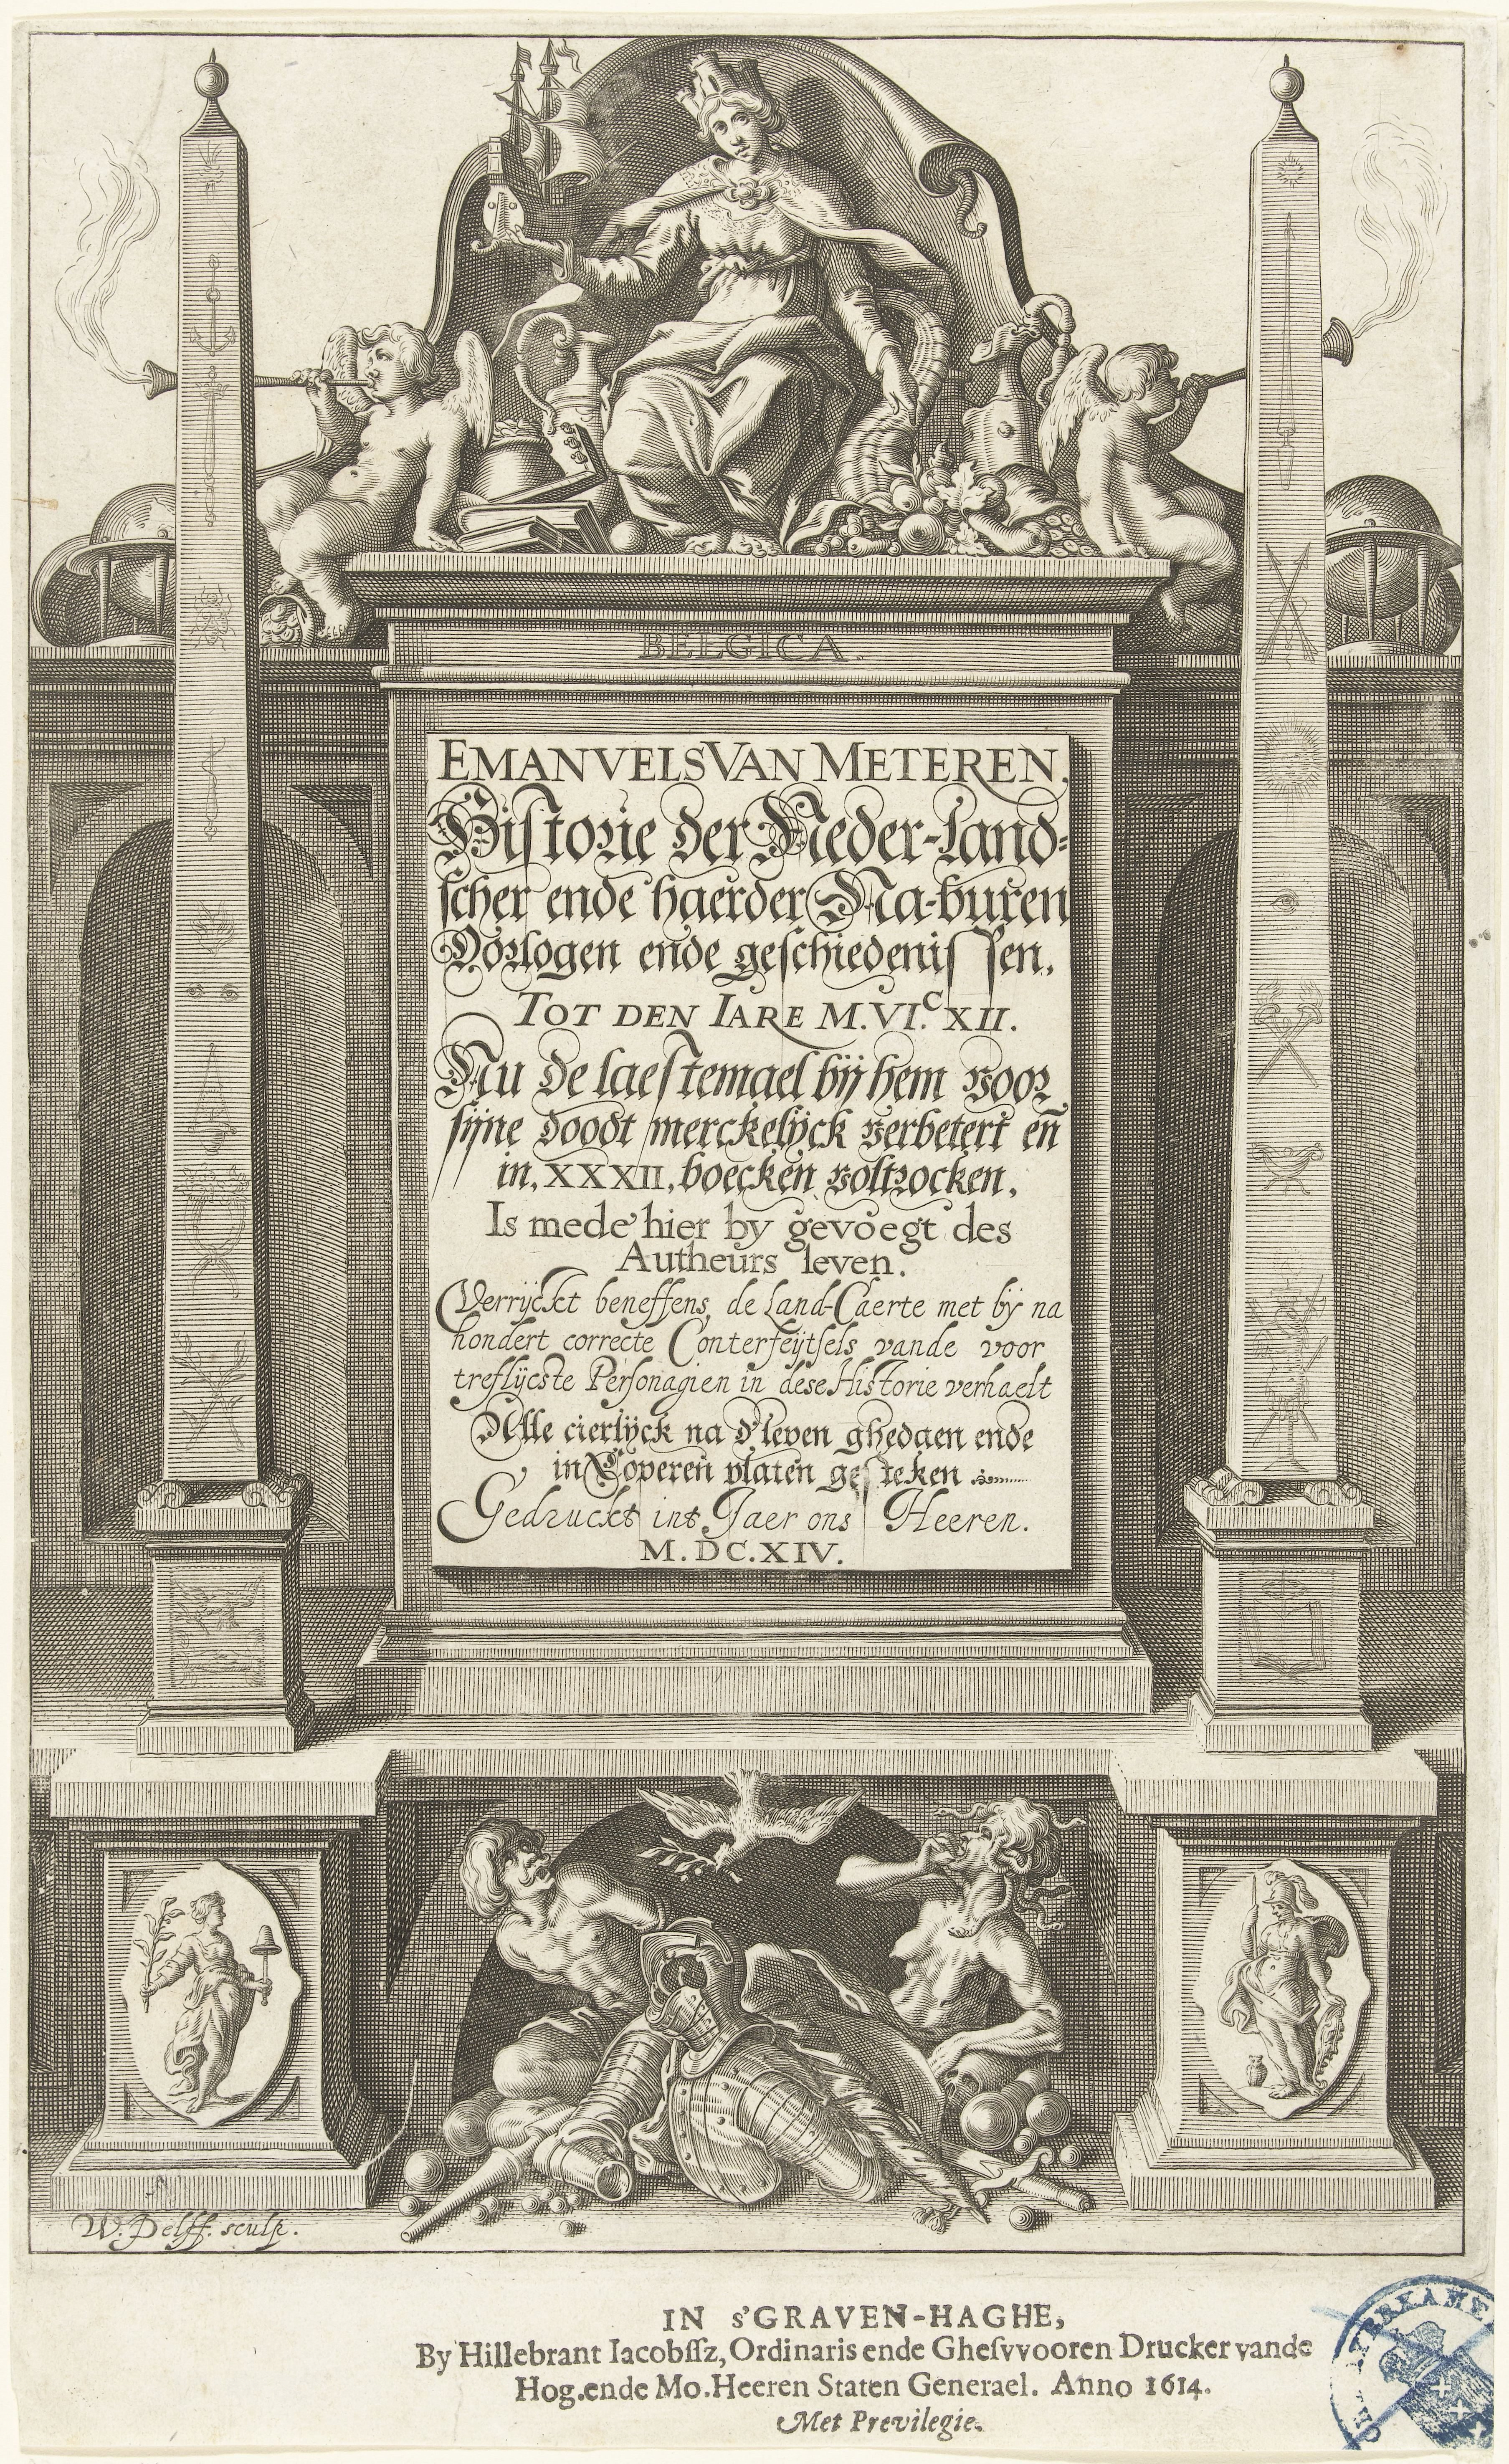 BELGICA.
EMANVELS VAN METEREN.
Historie der Neder-land-
scher ende haerder Na-buren
Oorlogen ende geschiedenissen.
TOT DEN IARE M.VI.C XII.
Nu de laestemael bij hem voor
sijne doodt merckelijck verbetert en̄
in. XXXII. boecken voltrocken.
Is mede hier by gevoegt des
Autheurs leven.
Verryckt beneffens, de Land-Caerte met by na
hondert correcte Conterfeijtsels vande voor
treflijcste Personagien in dese Historie verhaelt
Alle cierlijck na d'leven ghedaen ende
in Coperen platen gesteken
Gedruckt int Jaer ons Heeren.
M.DC.XIV.
W. Delff. sculp.
IN s'GRAVEN-HAGHE,
By Hillebrant Iacobssz, Ordinaris ende Ghesvvooren Drucker vande
Hog.ende Mo.Heeren Staten Generael. Anno 1614.
Met Previlegie.